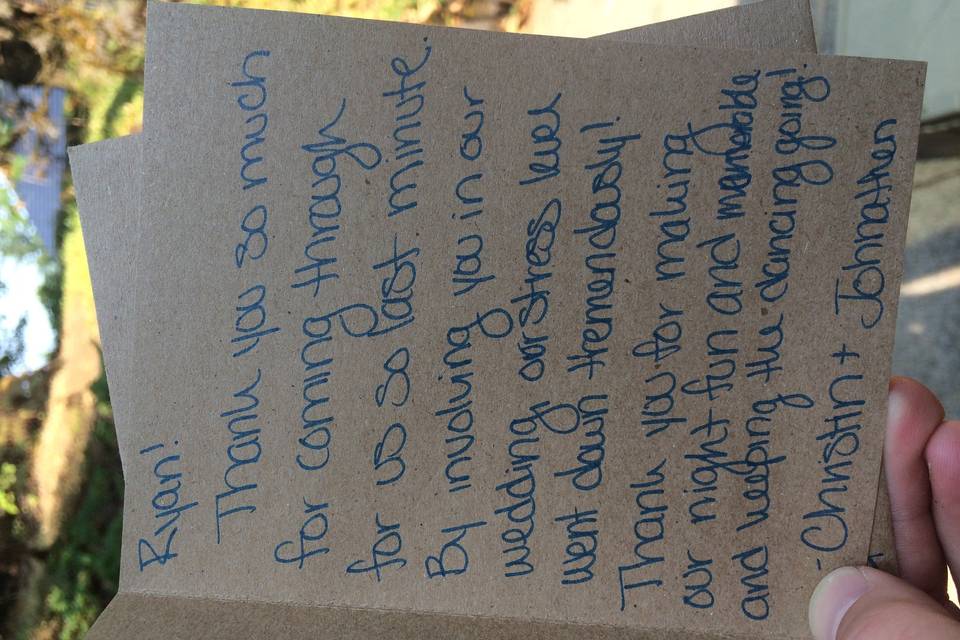 Ryan!
Thank you so much
for coming through
for us so last minute.
By involving you in our
wedding our stress level
went down tremendously!
Thank you for making
our night fun and memorable
and keeping the dancing going!
- Christin + Johnathen